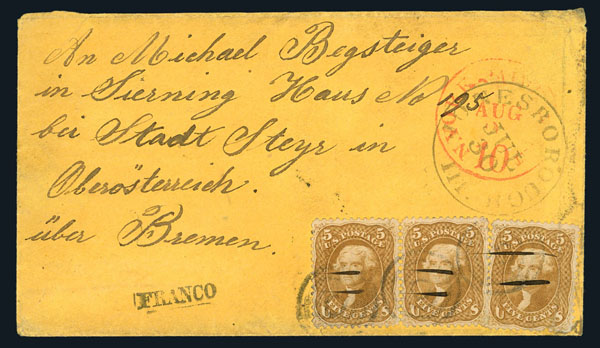 An Michael Begsteiger
in Sierning Haus No 195
bei Stadt Steyr in
Oberösterreich.
über Bremen.
AUG
10
FRANCO
5 5
U.S. POSTAGE
FIVE CENTS
U S
5 5
U.S. POSTAGE
FIVE CENTS
U S
5 5
U.S. POSTAGE
FIVE CENTS
U S